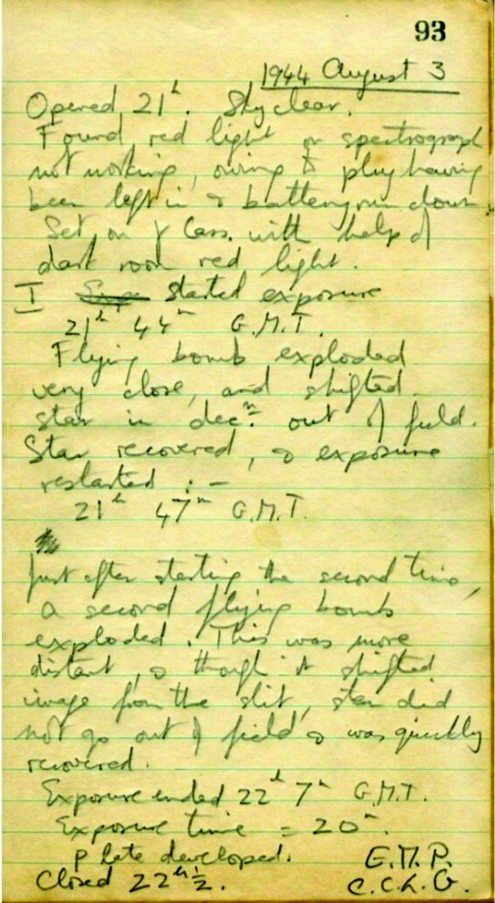 93
1944 August 3
Opened 21h. Sky clear.
Found red light on spectrograph
not working, owing to plug having
been left in & battery run down.
Set on γ Cass. with help of
dark room red light.
I Exp started exposure
21h 44m G.M.T.
Flying bomb exploded
very close, and shifted
star in decn. out of field.
Star recovered, & exposure
restarted :-
21h 47m G.M.T.
Just after starting the second time,
a second flying bomb
exploded. This was more
distant, & though it shifted
image from the slit, star did
not go out of field & was quickly
recovered.
Exposure ended 22h 7m G.M.T.
Exposure time = 20m.
Plate developed.
E.M.P.
Closed 22h½.
C.C.L.G.